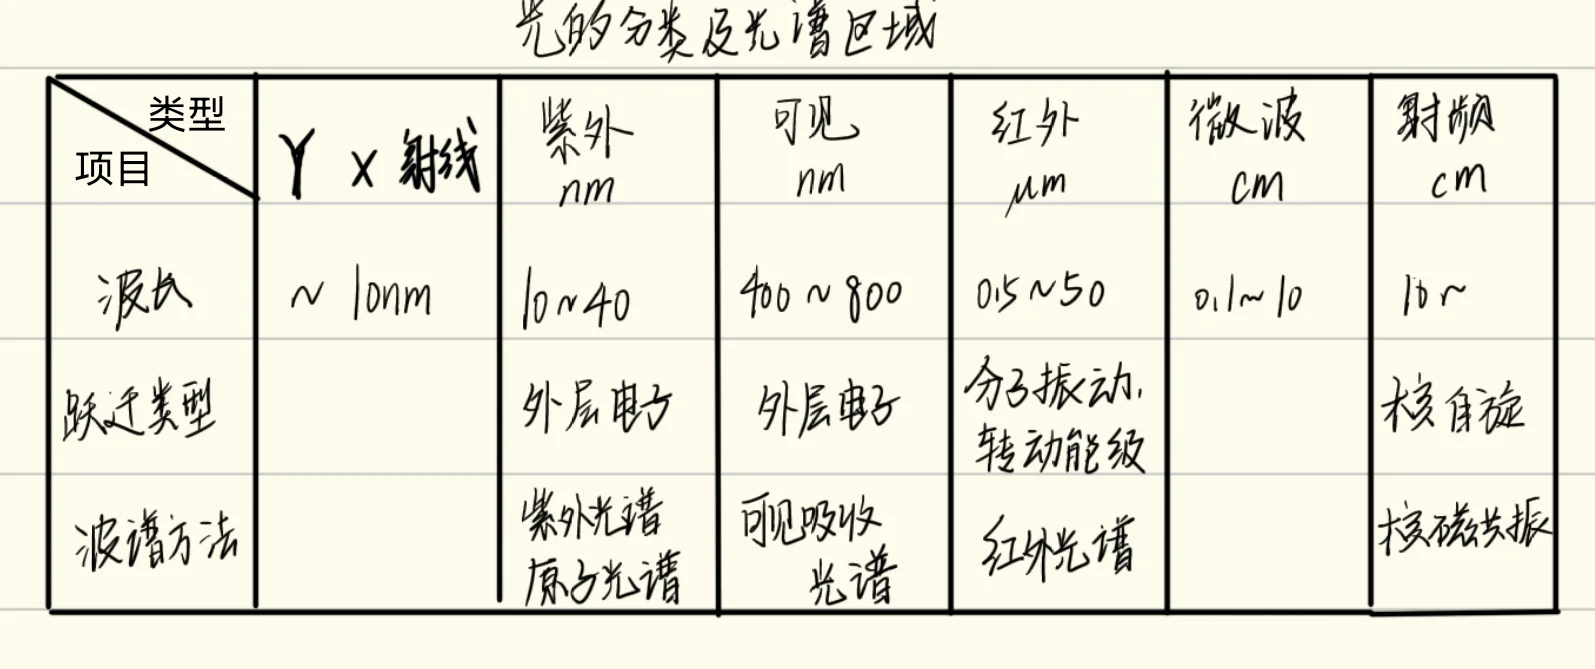 光的分类及光谱区域
类型
项目
γ X 射线
紫外
nm
可见
nm
红外
μm
微波
cm
射频
cm
波长
~ 10nm
10~40
400~800
0.5~50
0.1~10
10~
跃迁类型
外层电子
外层电子
分子振动,
转动能级
核自旋
波谱方法
紫外光谱
原子光谱
可见吸收
光谱
红外光谱
核磁共振